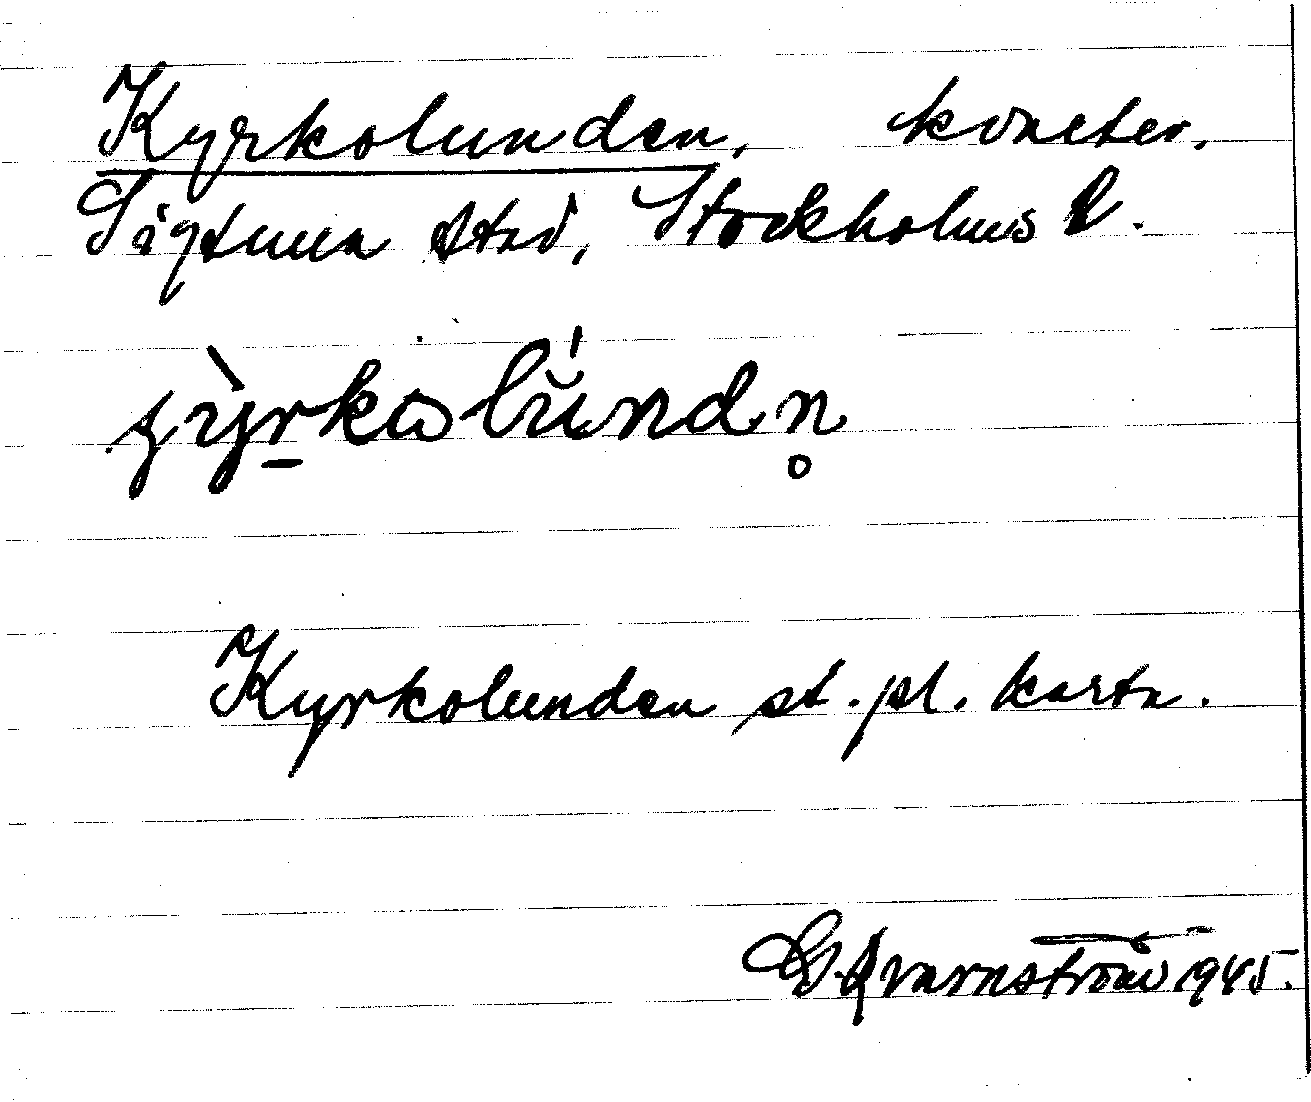 Kyrkolunden, kvarter.
Sigtuna stad, Stockholms l.
Kyrkolunden st. pl. karta.
G. Qvarnström 1945.